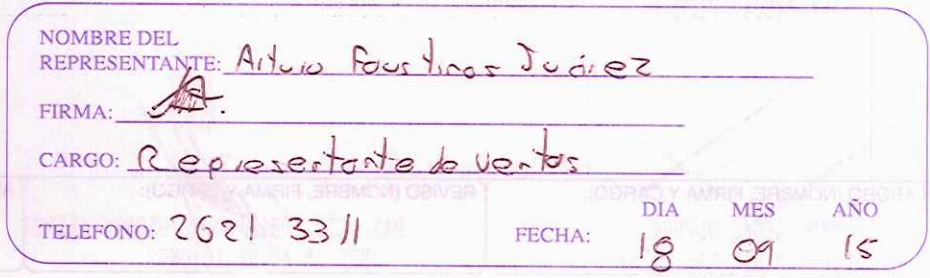 NOMBRE DEL
REPRESENTANTE: Arturo Faustinos Juárez
FIRMA:
CARGO: Representante de ventas
DIA MES AÑO
TELEFONO: 2621 3311 FECHA: 18 09 15